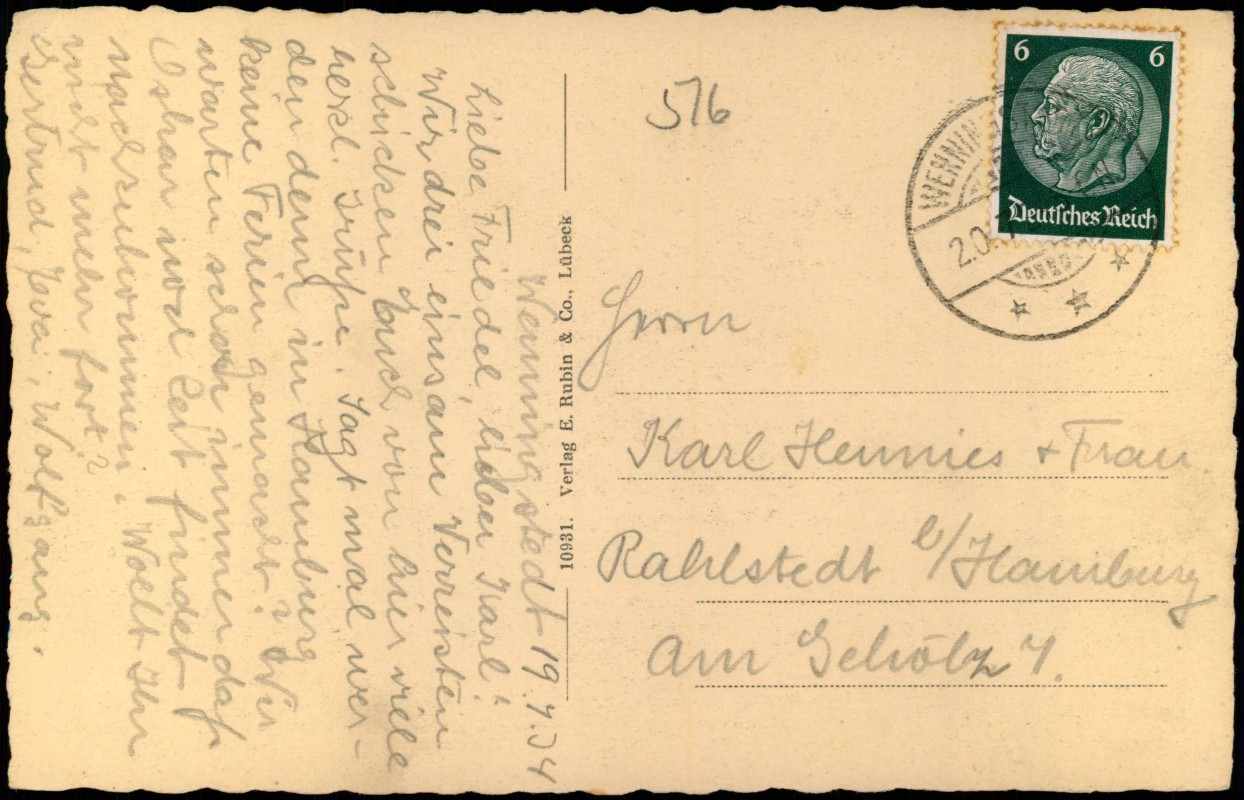 Wenningstedt 19.7.34
Liebe Friedel, lieber Karl!
Wir drei einsam Verreisten
schicken Euch von hier viele
herzl. Grüße. Sagt mal, wer-
den denn in Hamburg
keine Ferien gemacht? Wir
warten schon immer daß
Ihr nod Zeit findet
nachzukommen. Wollt Ihr
nicht mehr fort?
Gertrud, Eva, Wolfgang.
10931. Verlag E. Rubin & Co., Lübeck
516
6 6
Deutsches Reich
WENNIN
20
Herrn
Karl Hennies + Frau.
Rahlstedt b/Hamburg
Am Gehölz 7.